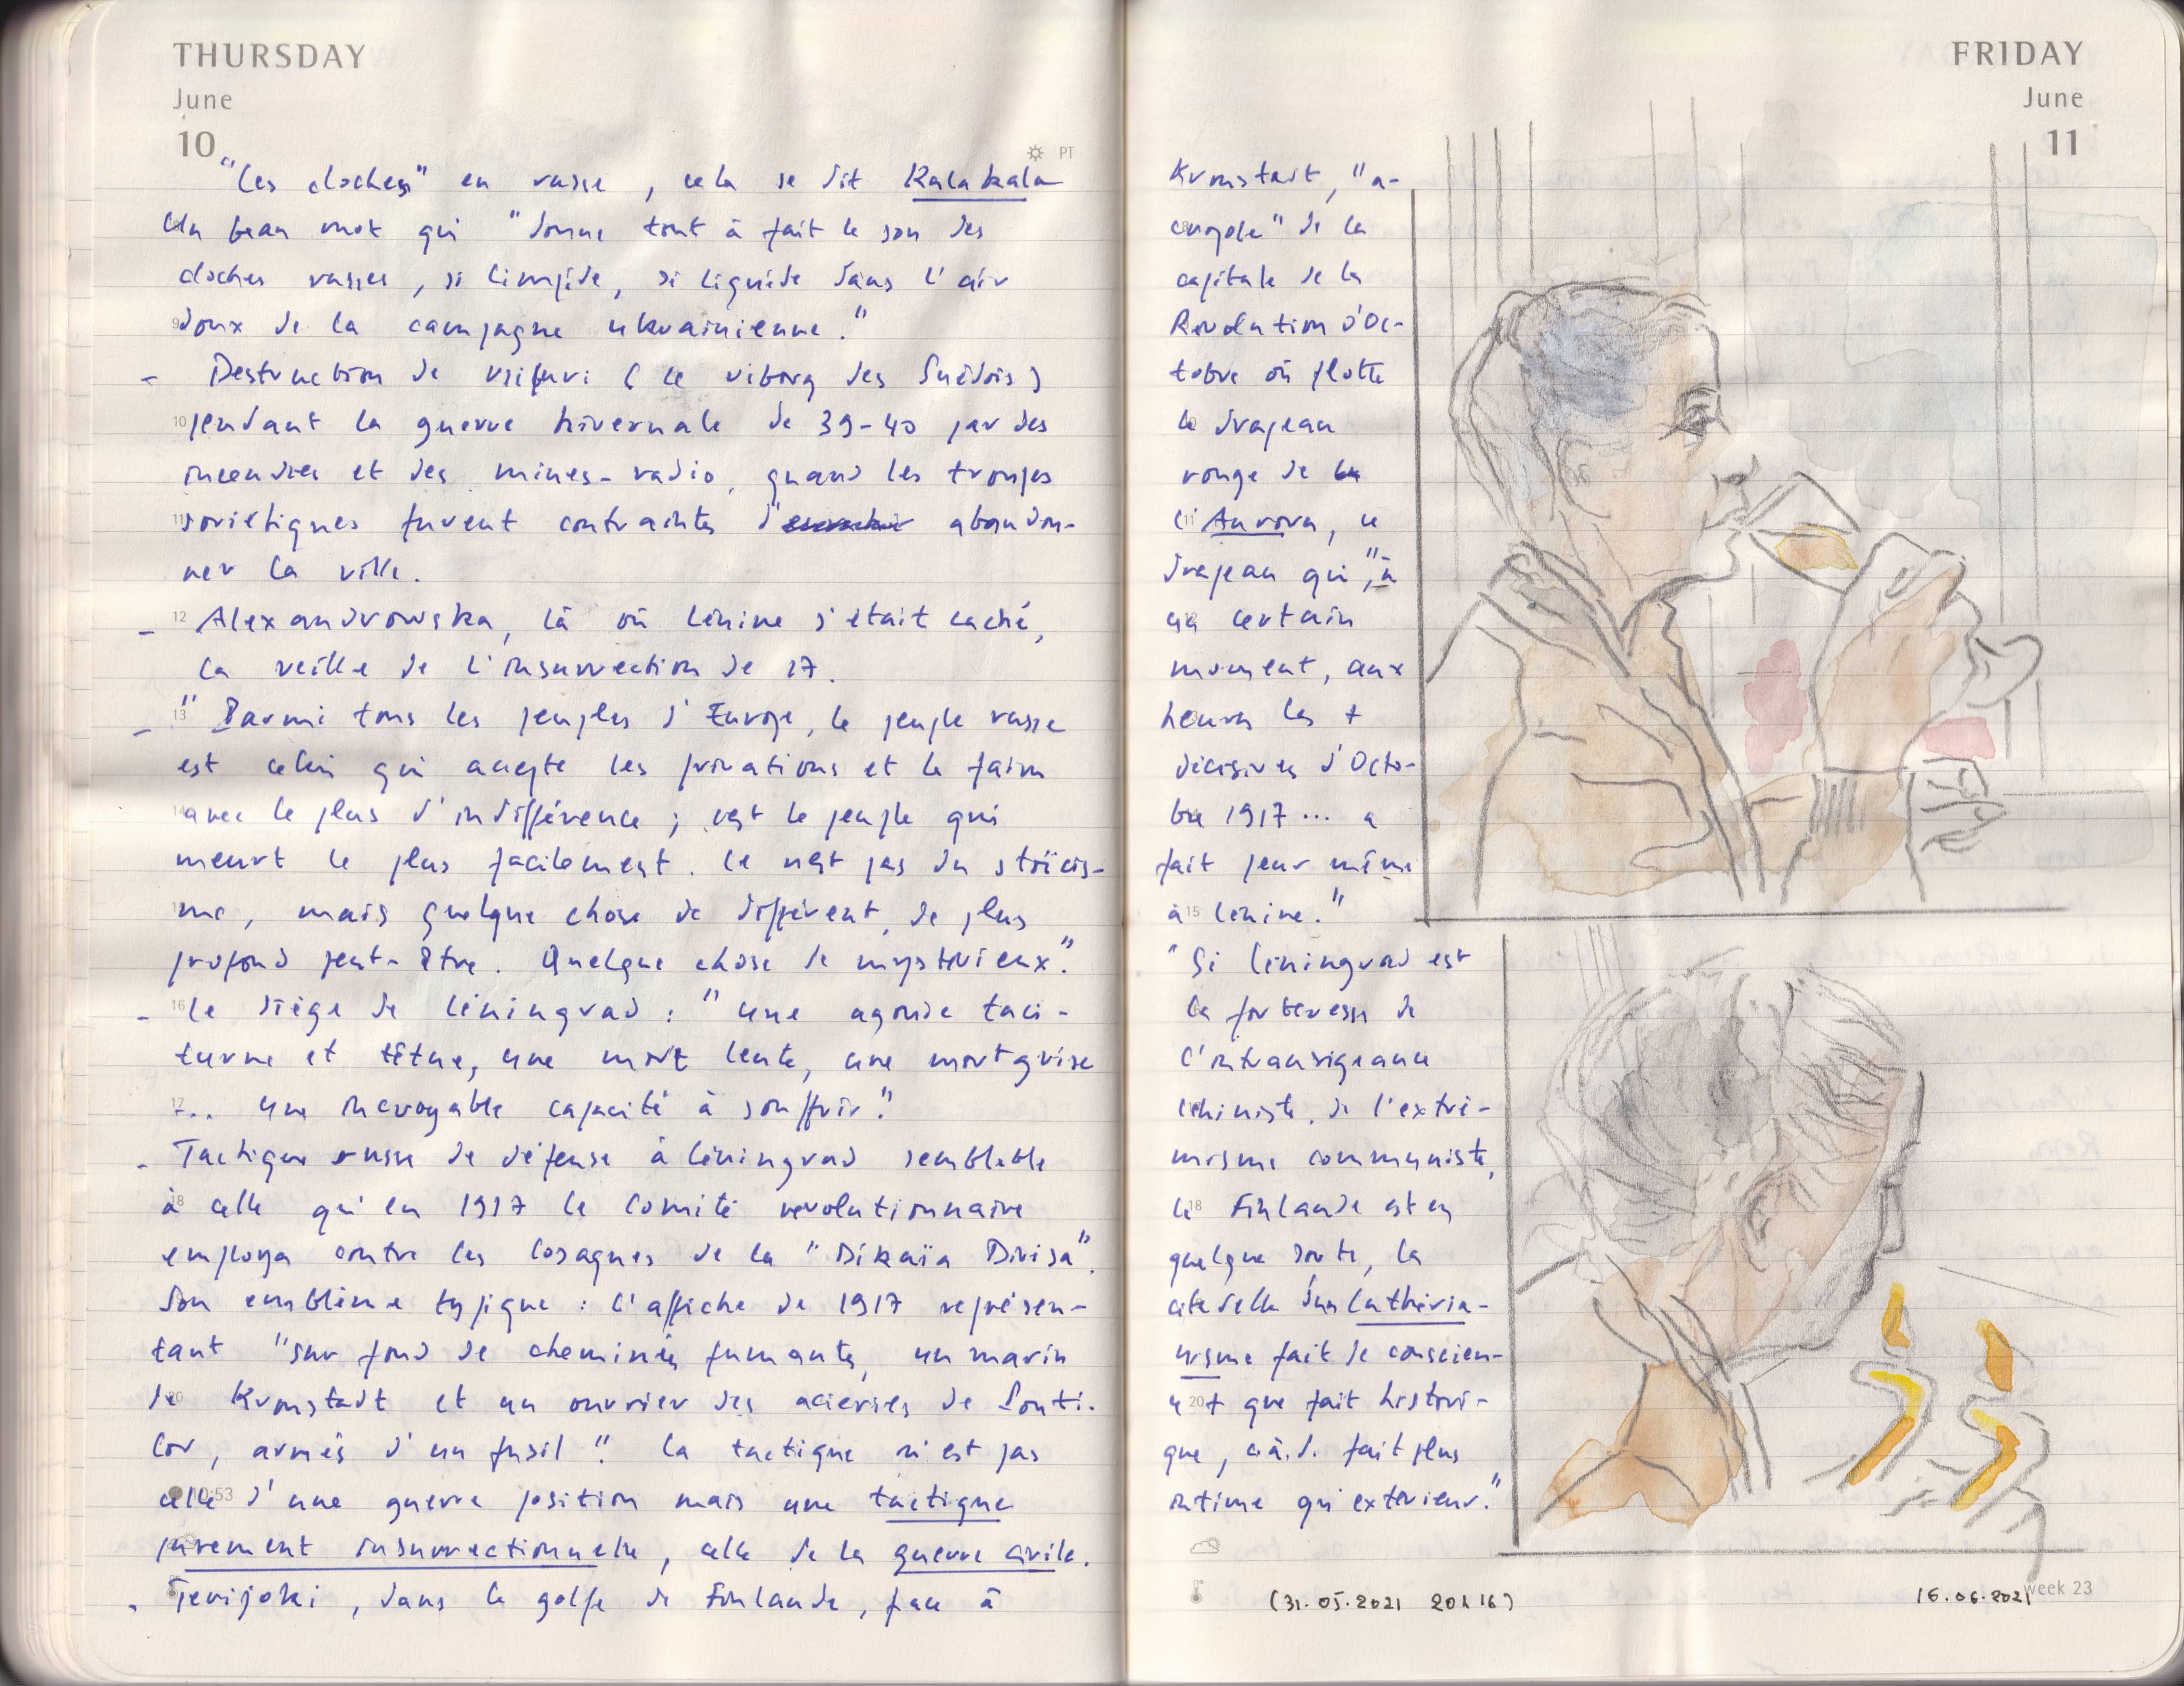 THURSDAY
June
10
PT
"Les cloches" en russe, cela se dit Kalakala
Un beau mot qui "donne tout à fait le son des
cloches russes, si limpide, si liquide dans l'air
doux de la campagne ukrainienne."
- Destruction de (le Viborg des Suédois)
pendant la guerre hivernale de 39-40 par des
incendies et des mines-radio, quand les troupes
soviétiques furent contraintes d' abandon-
ner la ville.
- Alexandrowska, là où Lénine s'était caché,
la veille de l'insurrection de 17.
- "Parmi tous les peuples d'Europe, le peuple russe
est celui qui accepte les privations et la faim
avec le plus d'indifférence ; c'est le peuple qui
meurt le plus facilement. Ce n'est pas du stoïcis-
me, mais quelque chose de différent, de plus
profond peut-être. Quelque chose de mystérieux".
- Le siège de Léningrad : "une agonie taci-
turne et têtue, une mort lente, une mort grise
... une incroyable capacité à souffrir".
- Tactique russe de défense à Léningrad semblable
à celle qu'en 1917 le Comité revolutionnaire
employa contre les Cosaques de la "Dikaïa Divisa".
Son emblème typique : l'affiche de 1917 représen-
tant "sur fond de cheminées fumantes, un marin
de Kronstadt et un ouvrier des acieries de Pouti-
lov, armés d'un fusil". La tactique n'est pas
celle d'une guerre position mais une tactique
purement insurrectionnelle, celle de la guerre civile.
- Terijoki, dans le golfe de Finlande, face à
FRIDAY
June
11
Kronstadt, "a-
cropole" de la
capitale de la
Revolution d'Oc-
tobre où flotte
le drapeau
rouge de
l'Aurora, ce
drapeau qui ", à
un certain
moment, aux
heures les +
décisives d'Octo-
bre 1917 ... a
fait peur même
à Lénine."
"Si Léningrad est
la forteresse de
l'intransigeance
léniniste, de l'extré-
misme communiste,
la Finlande est en
quelque sorte, la
citadelle d'un luthéria-
nisme fait de conscien-
ce + que fait histori-
que, c.à.d. fait plus
intime qu'extérieur."
(31.05.2021 20h16)
16.06.2021
week 23